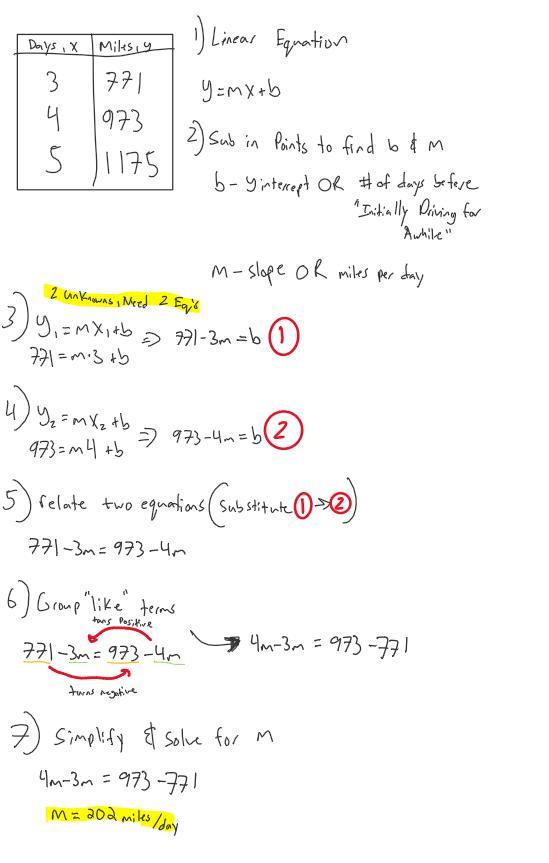 Days, x Miles, y
3 771
4 973
5 1175
1) Linear Equation
y=mx+b
2) Sub in Points to find b & m
b - y intercept OR # of days before
"Initially Driving for
Awhile"
m - slope OR miles per day
2 unknowns, Need 2 Eq's
3) y₁=mx₁+b => 771-3m=b ①
771=m·3+b
4) y₂=mx₂+b => 973-4m=b ②
973=m4+b
5) relate two equations (substitute ①→②)
771-3m=973-4m
6) Group "like" terms
turns Positive
771-3m=973-4m → 4m-3m=973-771
turns negative
7) Simplify & solve for m
4m-3m=973-771
m=202 miles/day